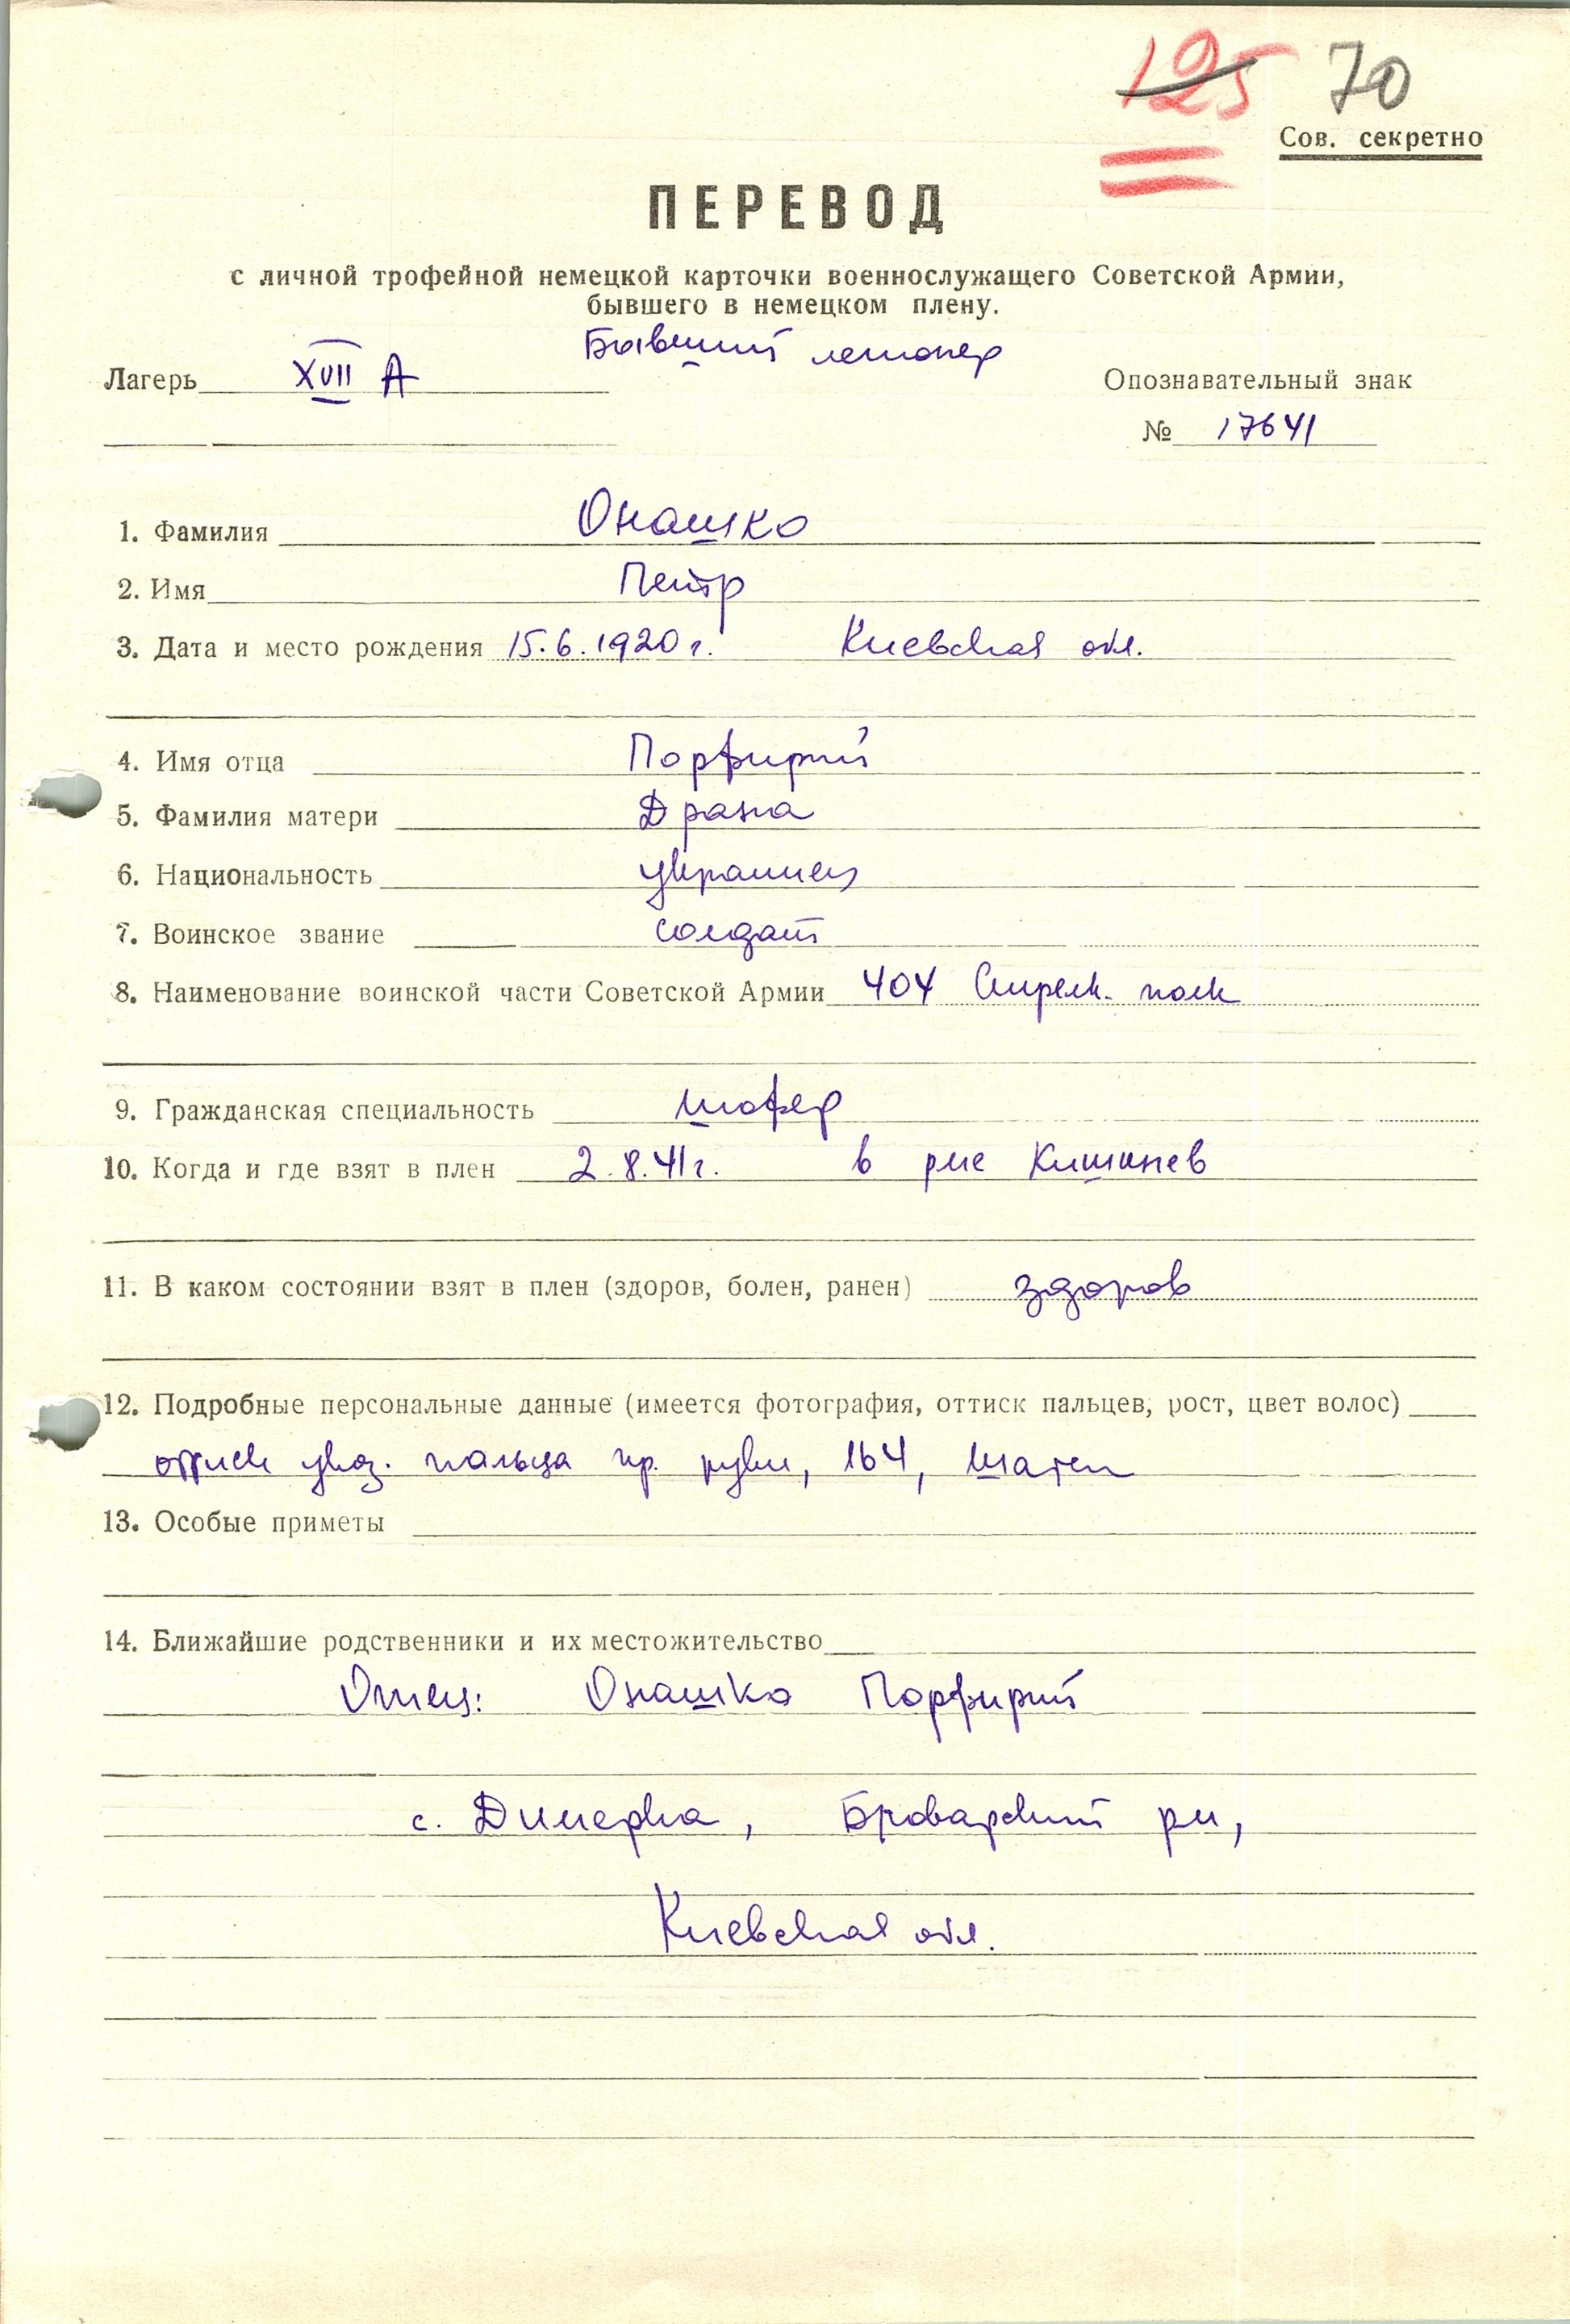 125 70
Сов. секретно
ПЕРЕВОД
с личной трофейной немецкой карточки военнослужащего Советской Армии,
бывшего в немецком плену.
Бывший легионер
Лагерь XVII А
Опознавательный знак
№ 17641
1. Фамилия Онашко
2. Имя Петр
3. Дата и место рождения 15.6.1920 г. Киевская обл.
4. Имя отца Порфирий
5. Фамилия матери
6. Национальность украинец
7. Воинское звание солдат
8. Наименование воинской части Советской Армии 404 Стрелк. полк
9. Гражданская специальность шофер
10. Когда и где взят в плен 2.8.41 г. в р-не Кишинев
11. В каком состоянии взят в плен (здоров, болен, ранен) здоров
12. Подробные персональные данные (имеется фотография, оттиск пальцев, рост, цвет волос)
оттиск указ. пальца пр. руки, 164, шатен
13. Особые приметы
14. Ближайшие родственники и их местожительство
Отец: Онашко Порфирий
с. Димерка, Броварский р-н,
Киевская обл.